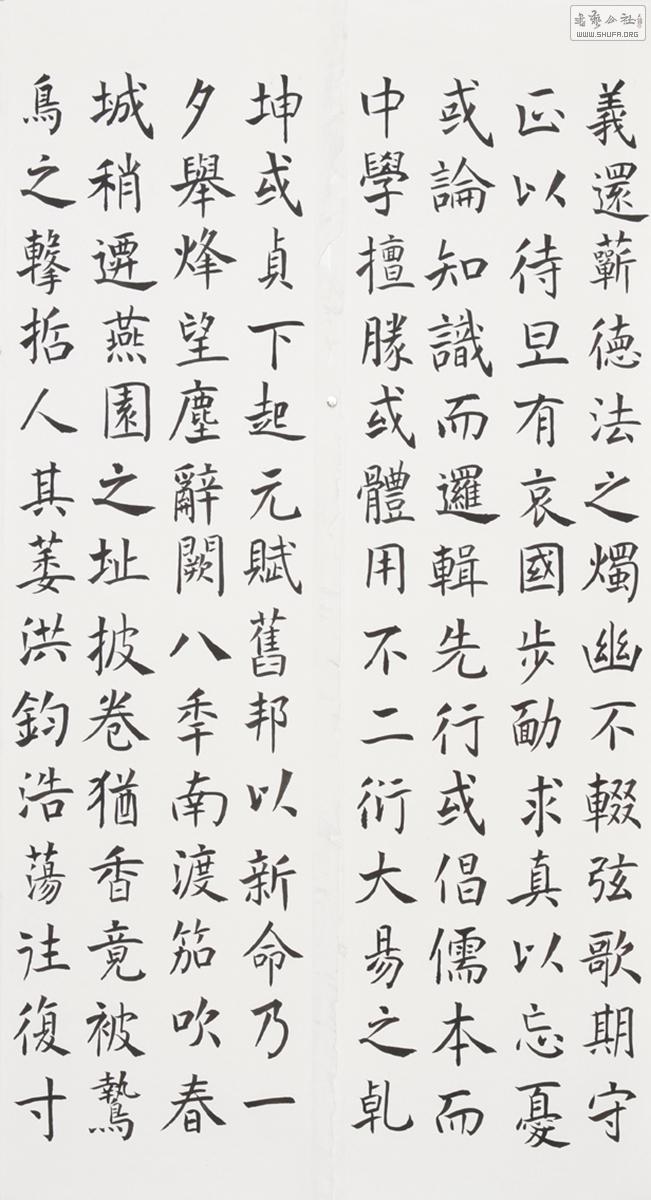 義還蘄德法之燭幽不輟弦歌期守
正以待旦有哀國步勔求真以忘憂
或論知識而邏輯先行或倡儒本而
中學擅勝或體用不二衍大易之乹
坤或貞下起元賦舊邦以新命乃一
夕舉烽望塵辭闕八秊南渡笳吹春
城稍遷燕園之址披卷猶香竟被鷙
鳥之擊哲人其萎洪鈞浩蕩往復寸
書藝公社
WWW.SHUFA.ORG